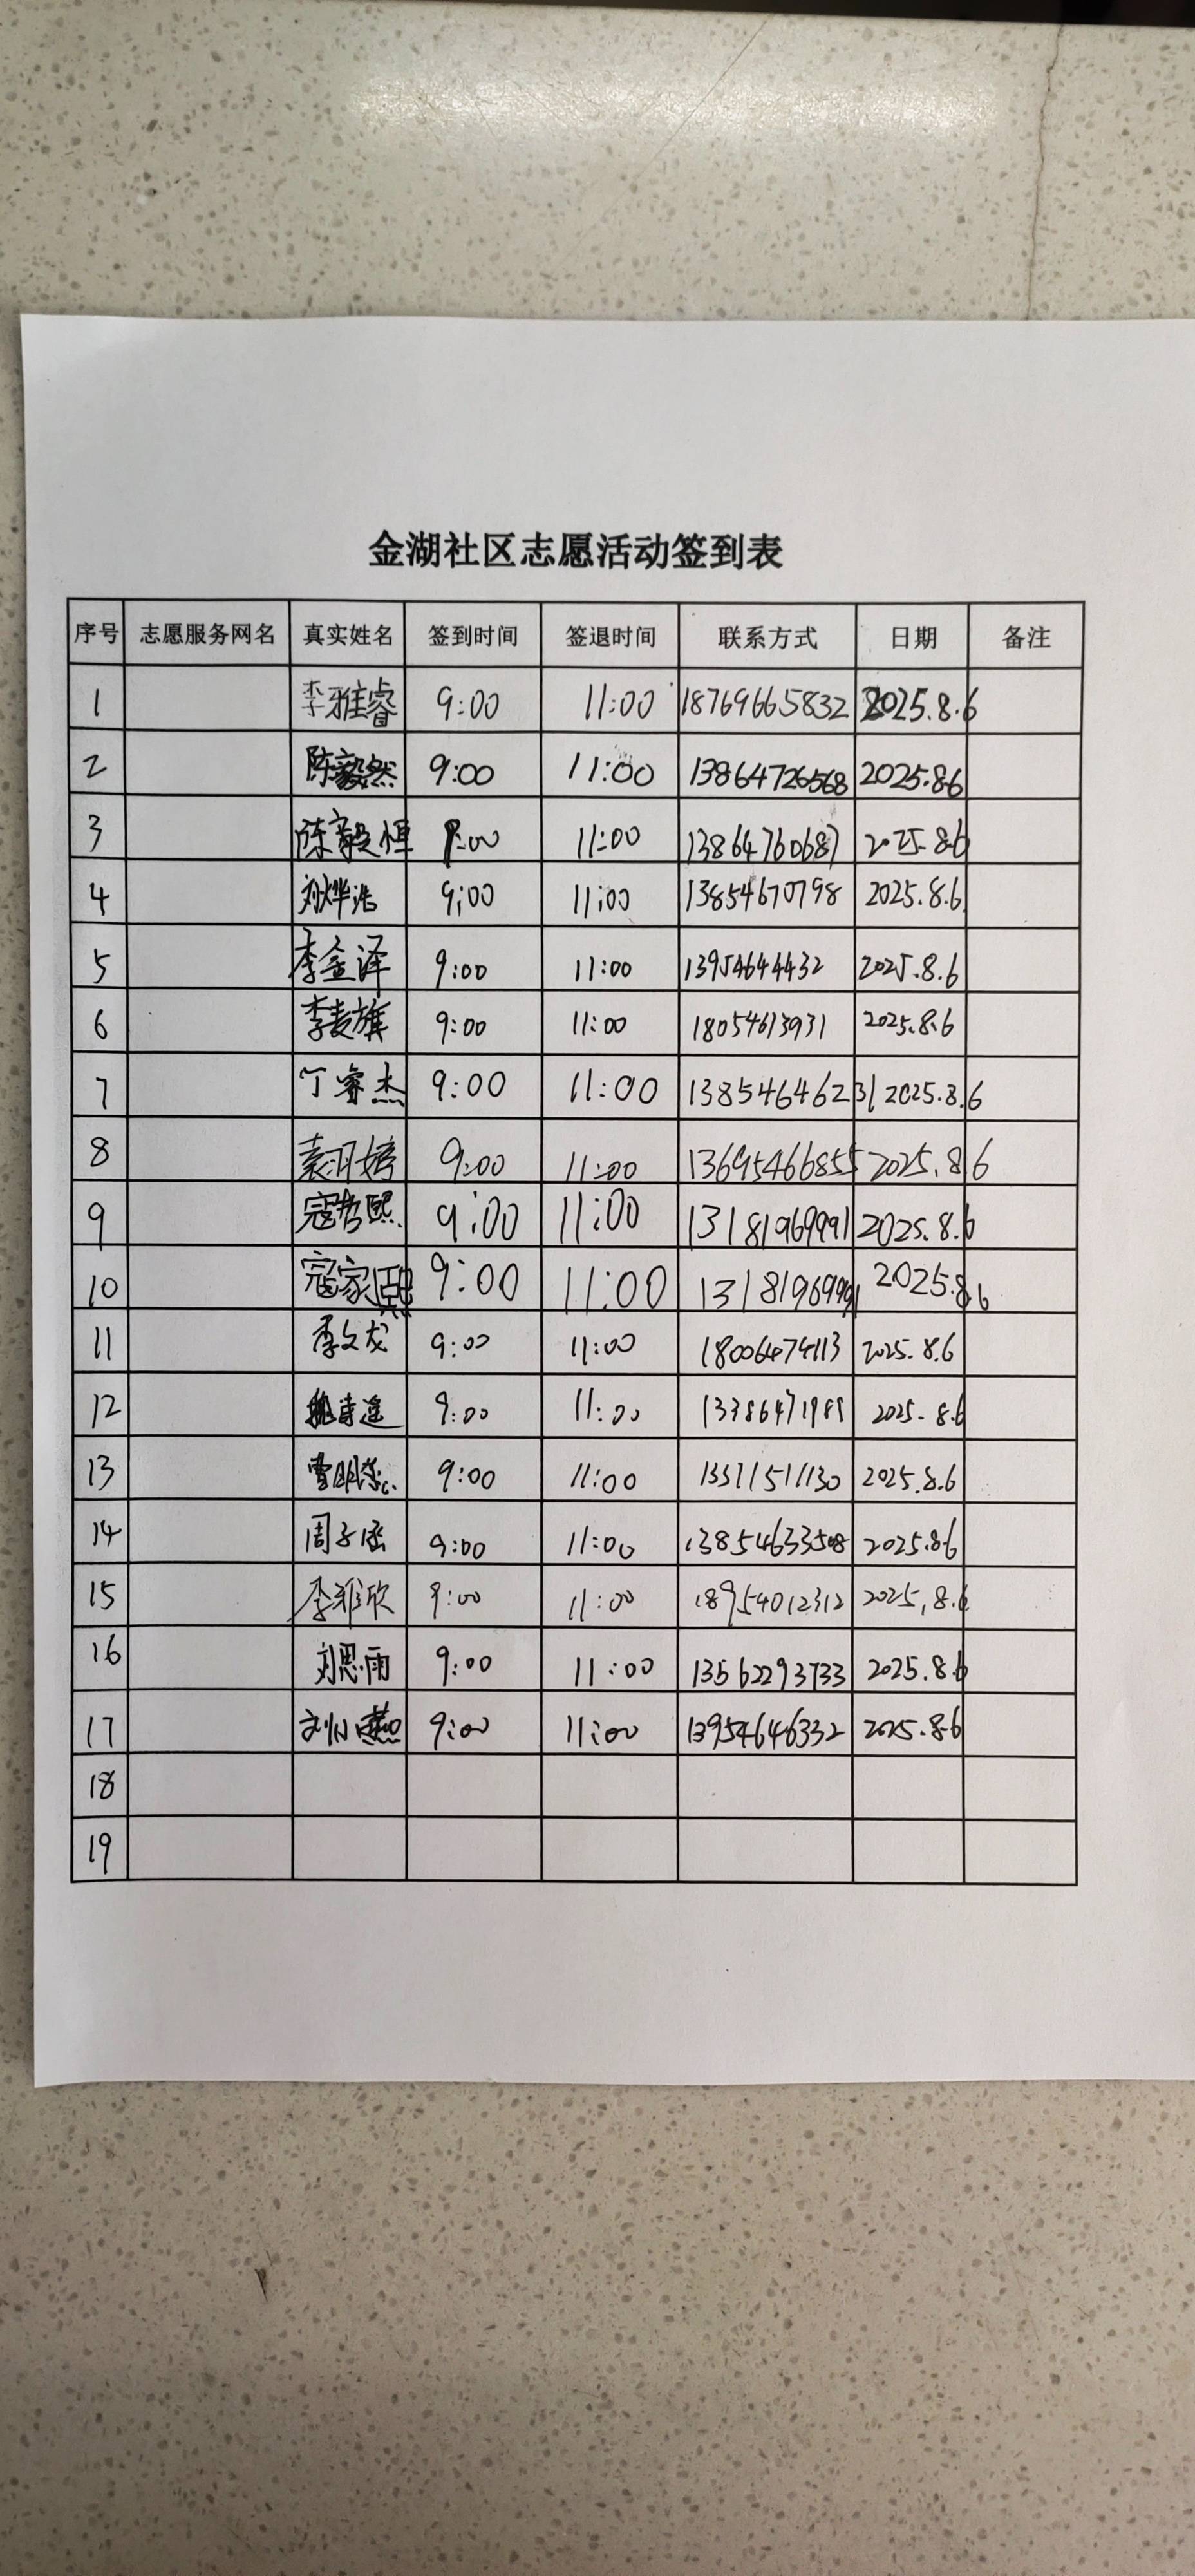 金湖社区志愿活动签到表
序号 志愿服务网名 真实姓名 签到时间 签退时间 联系方式 日期 备注
1 李雅睿 9:00 11:00 18769665832 2025.8.6
2 陈毅然 9:00 11:00 13864726568 2025.8.6
3 陈毅恒 9:00 11:00 13864760687 2025.8.6
4 刘烨浩 9:00 11:00 13854670798 2025.8.6
5 李金泽 9:00 11:00 13954644432 2025.8.6
6 李麦旗 9:00 11:00 18054613931 2025.8.6
7 丁睿杰 9:00 11:00 13854646231 2025.8.6
8 袁玥婷 9:00 11:00 13695466855 2025.8.6
9 寇哲熙 9:00 11:00 13181969991 2025.8.6
10 寇家熙 9:00 11:00 13181969991 2025.8.6
11 李文戈 9:00 11:00 18006474113 2025.8.6
12 9:00 11:00 2025.8.6
13 9:00 11:00 2025.8.6
14 周子涵 9:00 11:00 13854633508 2025.8.6
15 李雅欣 9:00 11:00 18954012312 2025.8.6
16 刘思雨 9:00 11:00 13562293733 2025.8.6
17 刘小燕 9:00 11:00 13954646332 2025.8.6
18
19